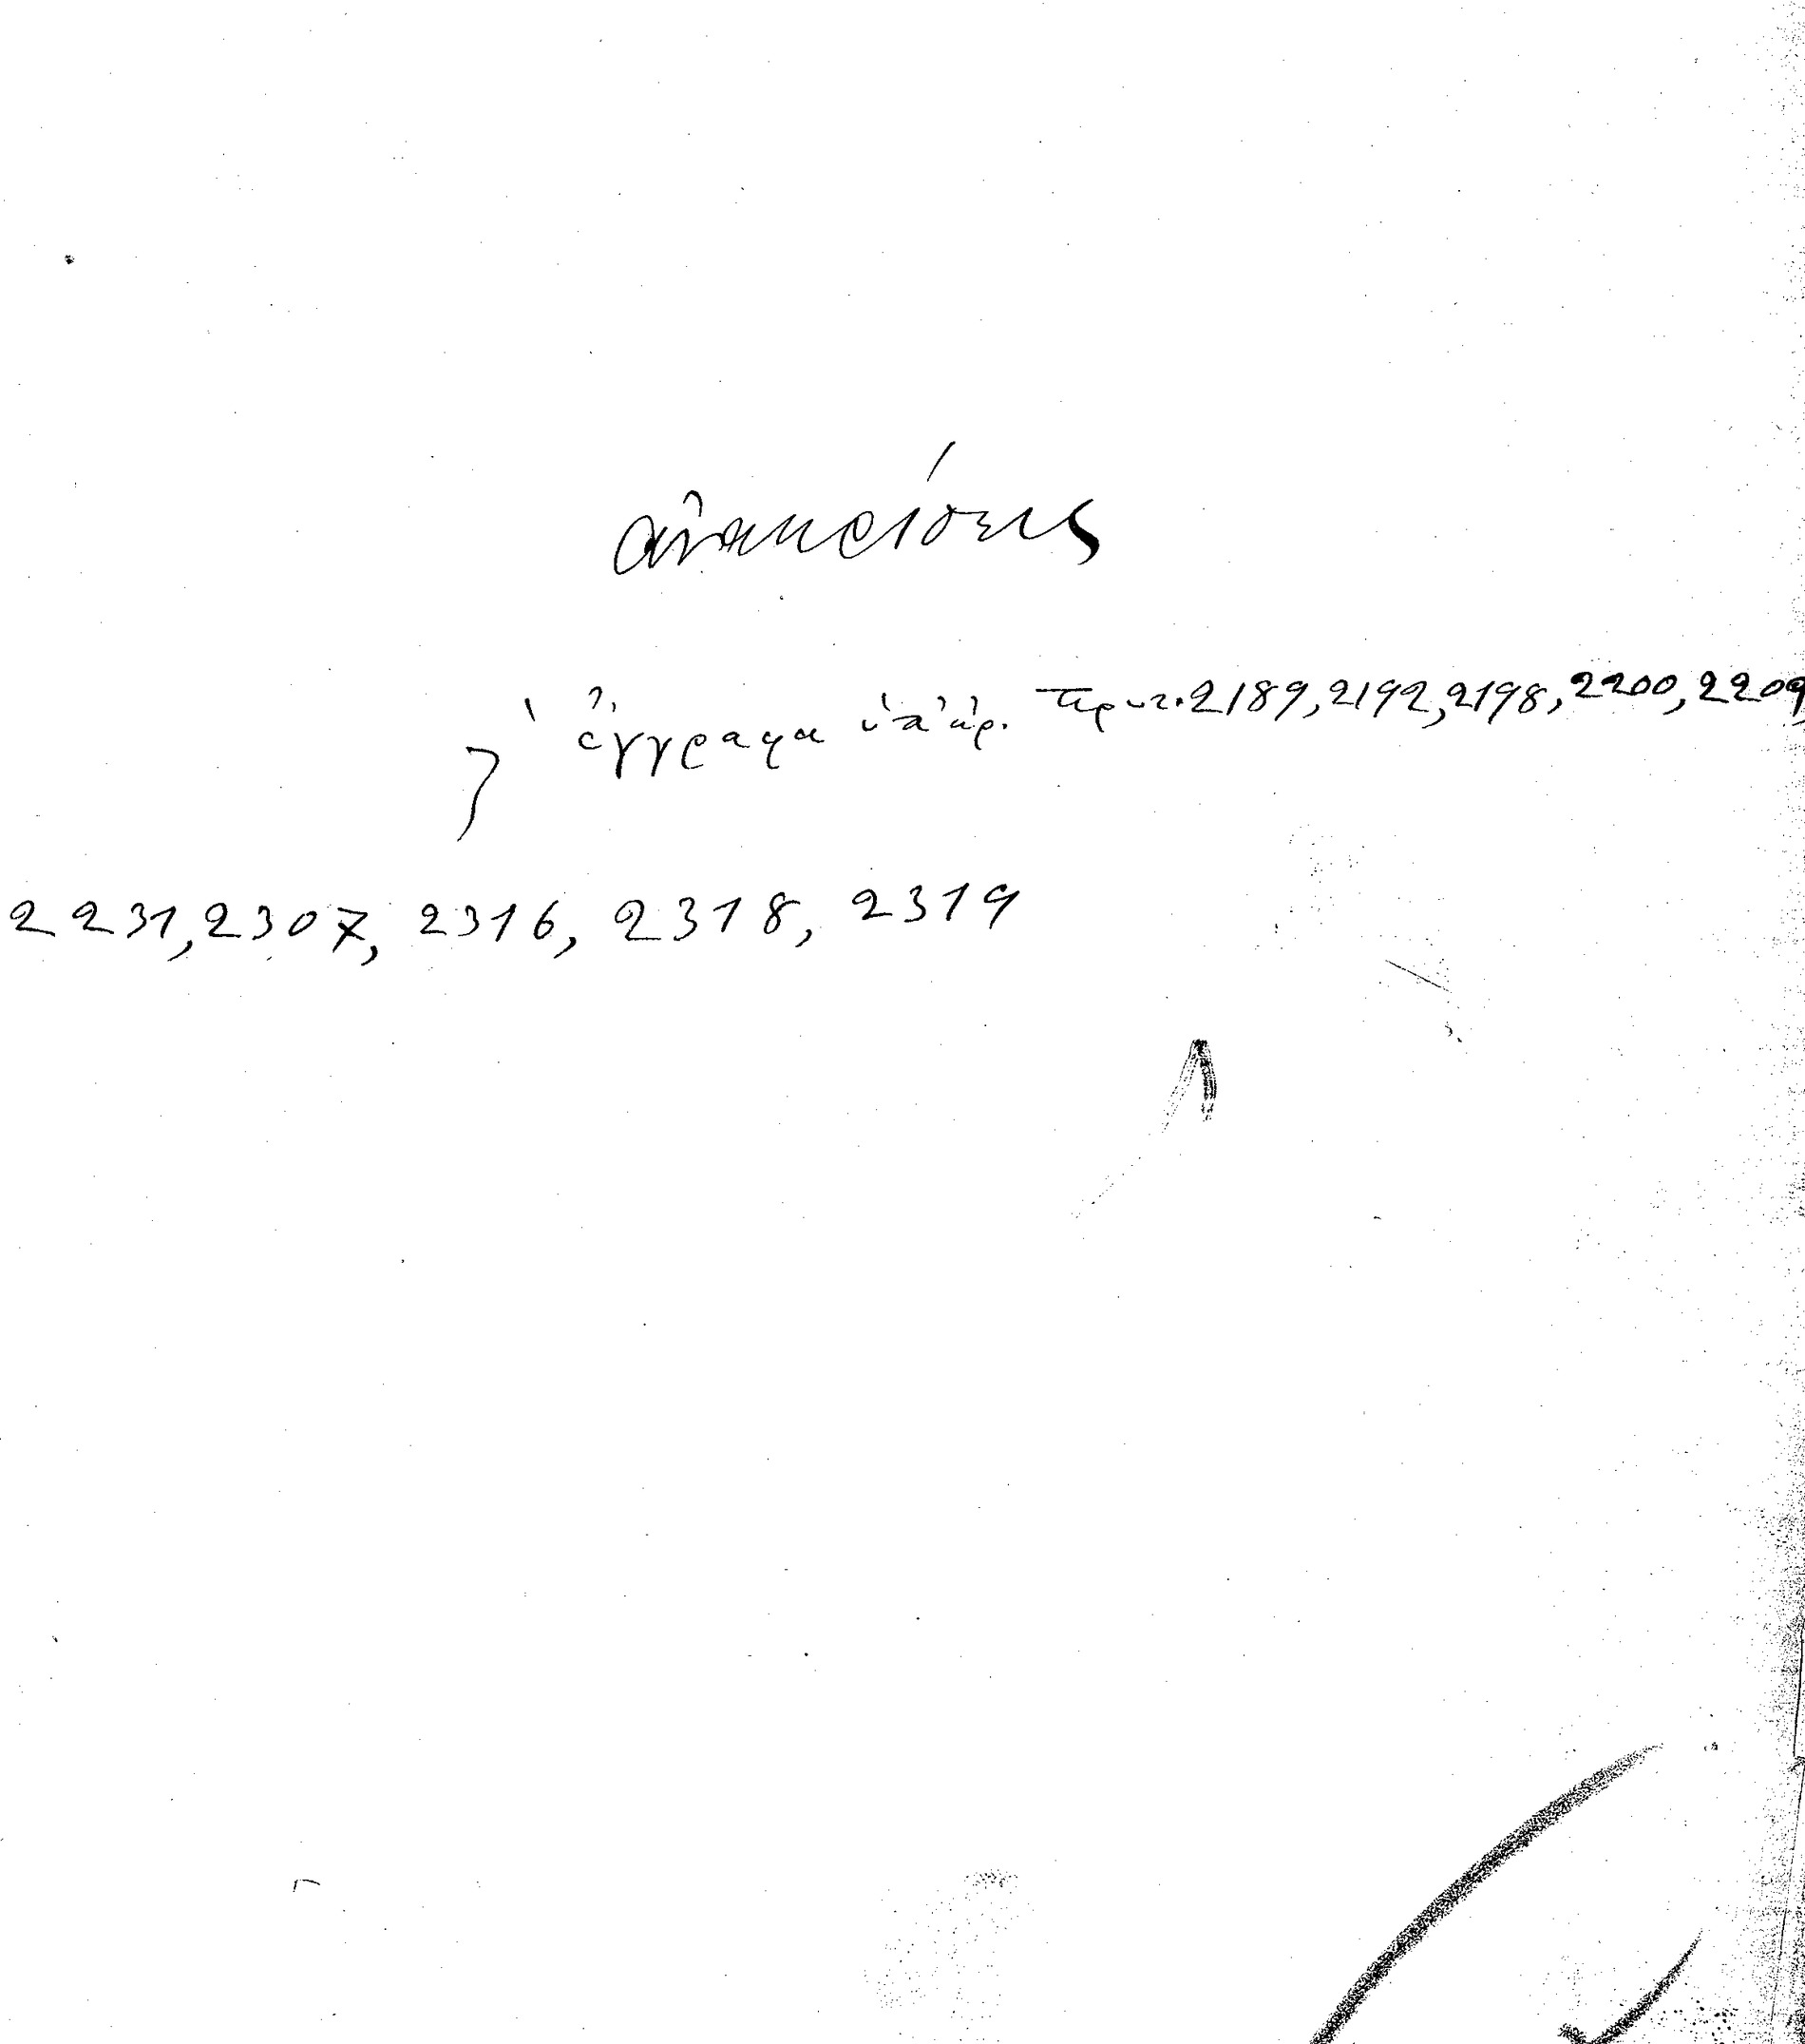 ἀνακρίσεις
ἔγγραφα ὑπ' ἀρ. πρωτ. 2189, 2192, 2198, 2200, 2209,
2231, 2307, 2316, 2318, 2319